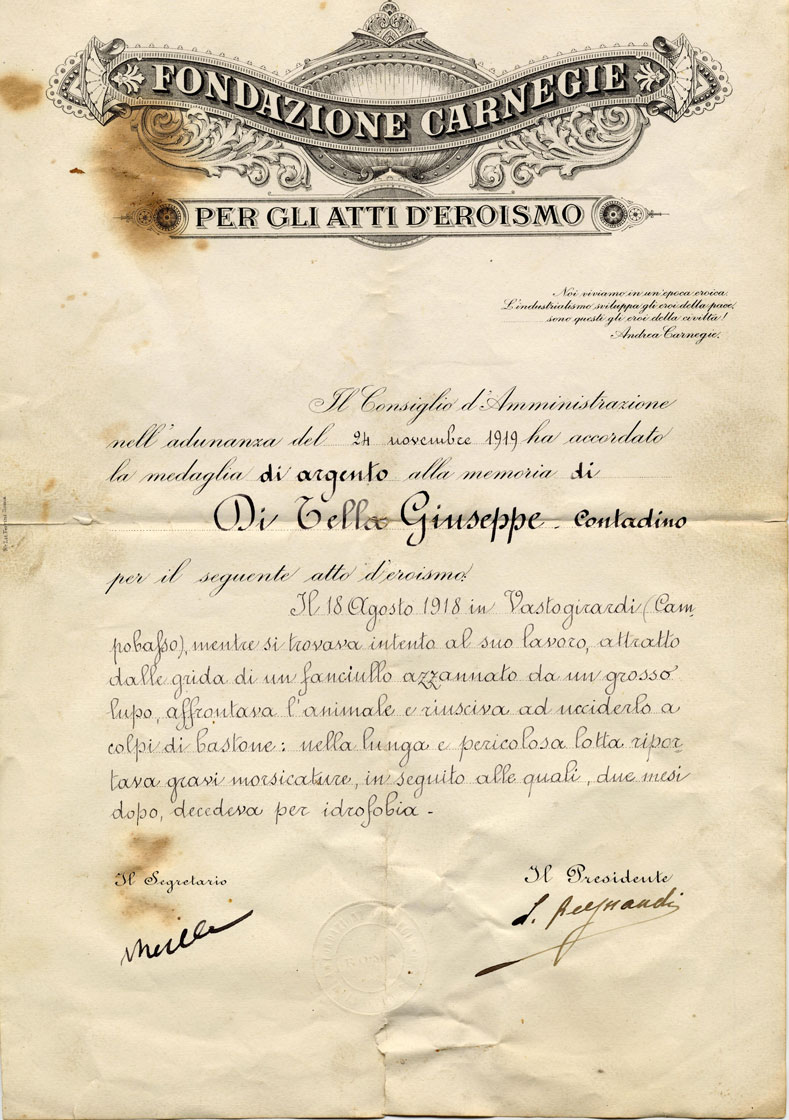 FONDAZIONE CARNEGIE
PER GLI ATTI D'EROISMO
Noi viviamo in un'epoca eroica.
L'industrialismo sviluppa gli eroi della pace,
sono questi gli eroi della civiltà!
Andrea Carnegie.
Il Consiglio d'Amministrazione
nell'adunanza del 24 novembre 1919 ha accordato
la medaglia di argento alla memoria di
Di Tella Giuseppe - Contadino
per il seguente atto d'eroismo:
Il 18 Agosto 1918 in Vastogirardi (Cam-
pobasso), mentre si trovava intento al suo lavoro, attratto
dalle grida di un fanciullo azzannato da un grosso
lupo, affrontava l'animale e riusciva ad ucciderlo a
colpi di bastone: nella lunga e pericolosa lotta ripor-
tava gravi morsicature, in seguito alle quali, due mesi
dopo, decedeva per idrofobia -
Il Segretario
Il Presidente